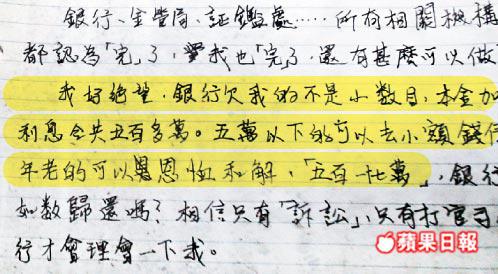 銀行、金管局、証監處……所有相關機構
都認為「完」了，當我也「完」了，還有甚麼可以做
我好絕望，銀行欠我的不是小數目，本金加
利息合共五百多萬。五萬以下的可以去小額錢債
年老的可以恩恤和解，「五百一十七萬」，銀行
如數歸還嗎？相信只有「訴訟」，只有打官司
行才會理會一下我。
蘋果日報